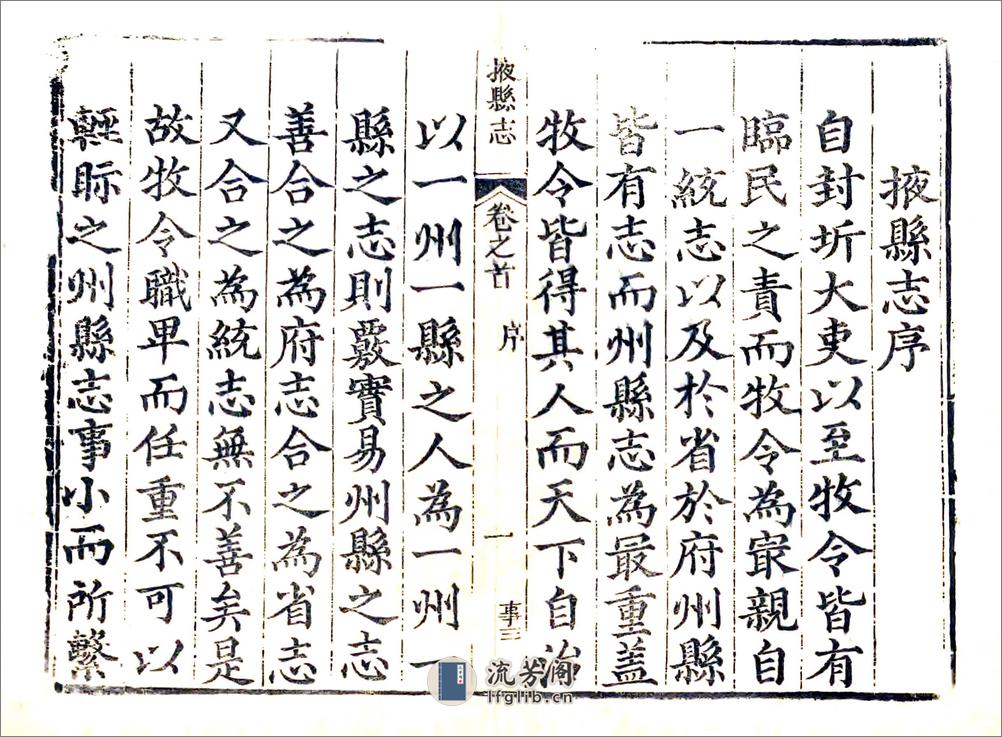 掖縣志序
自封圻大吏以至牧令皆有
臨民之責而牧令為㝡親自
一統志以及於省於府州縣
皆有志而州縣志為最重蓋
牧令皆得其人而天下自治
掖縣志
卷之首
序
一
事三
以一州一縣之人為一州一
縣之志則覈實易州縣之志
善合之為府志合之為省志
又合之為統志無不善矣是
故牧令職卑而任重不可以
輕眎之州縣志事小而所繫
流芳阁
lfglib.cn